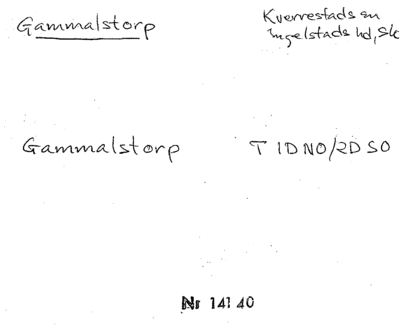 Gammalstorp
Kverrestads sn
Ingelstads hd, Sk
Gammalstorp T 1D NO/2D SO
Nr 141 40